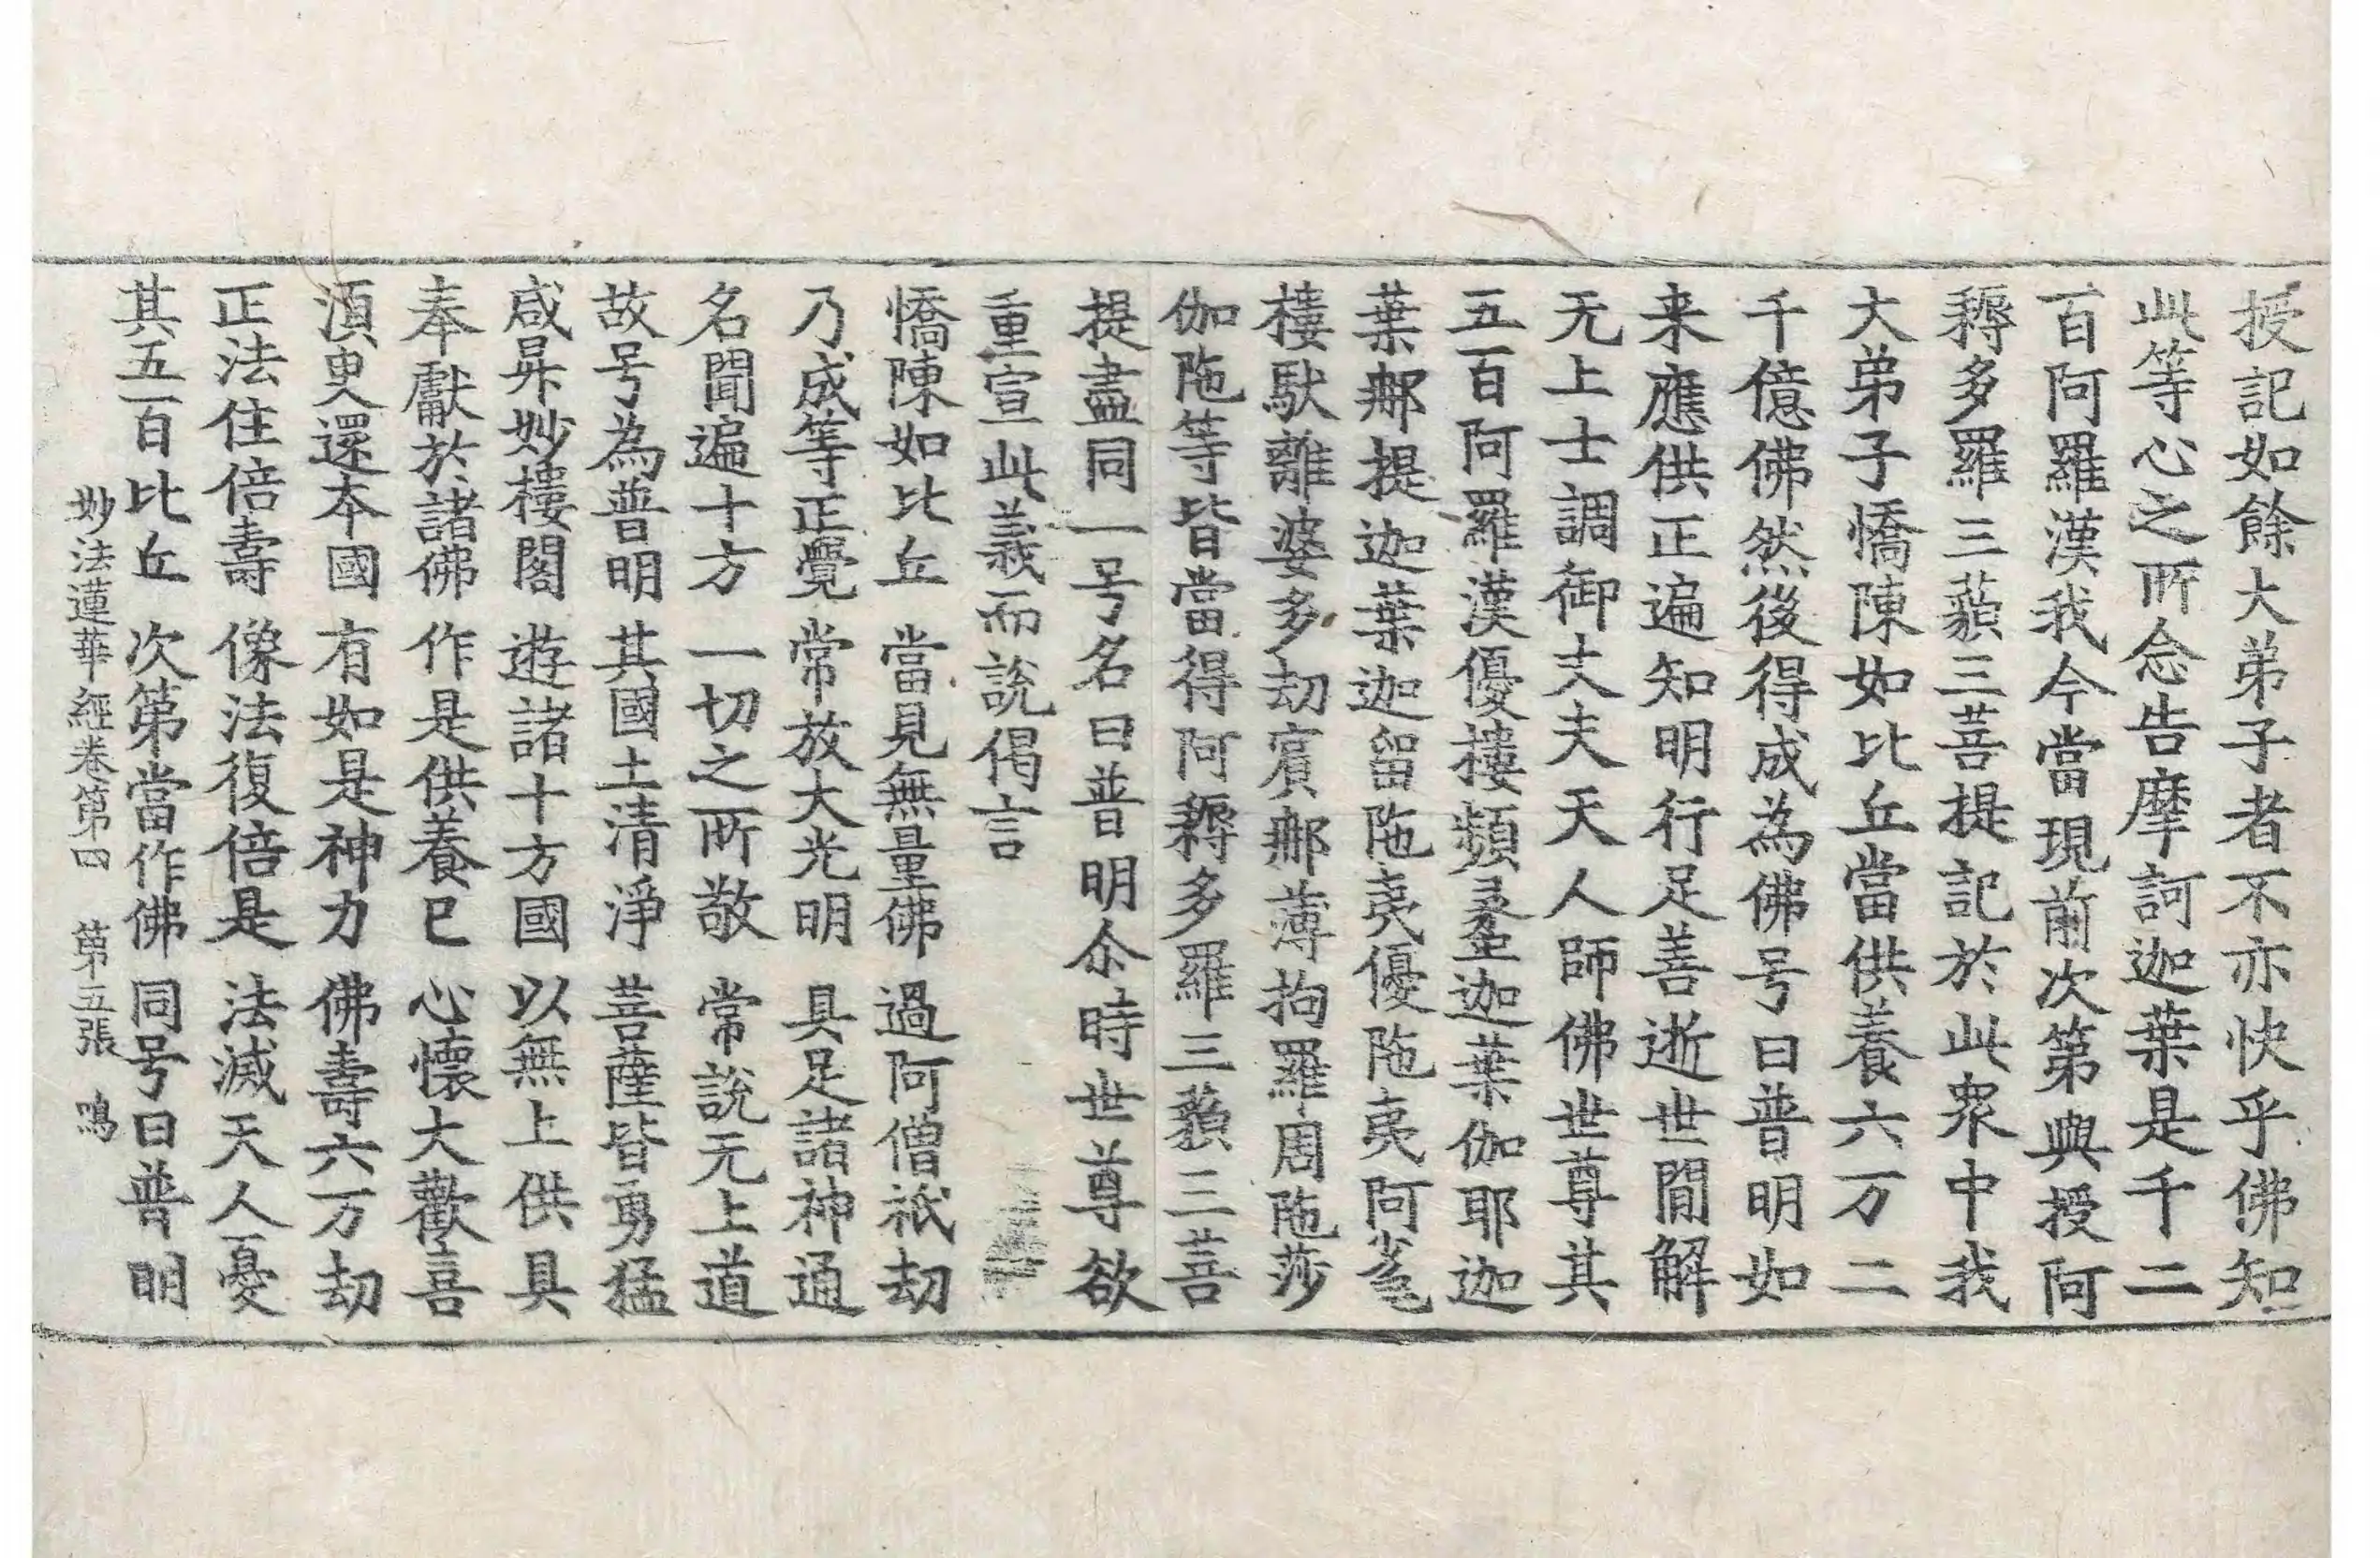 授記如餘大弟子者不亦快乎佛知
此等心之所念告摩訶迦葉是千二
百阿羅漢我今當現前次第與授阿
耨多羅三藐三菩提記於此衆中我
大弟子憍陳如比丘當供養六万二
千億佛然後得成為佛号曰普明如
来應供正遍知明行足善逝世間解
无上士調御丈夫天人師佛世尊其
五百阿羅漢優樓頻螺迦葉伽耶迦
葉那提迦葉迦留陁夷優陁夷阿㝹
樓馱離婆多劫賓那薄拘羅周陁莎
伽陁等皆當得阿耨多羅三藐三菩
提盡同一号名曰普明尒時世尊欲
重宣此義而說偈言
憍陳如比丘 當見無量佛 過阿僧祇劫
乃成等正覺 常放大光明 具足諸神通
名聞遍十方 一切之所敬 常說无上道
故号為普明 其國土清淨 菩薩皆勇猛
咸昇妙樓閣 遊諸十方國 以無上供具
奉獻於諸佛 作是供養已 心懷大歡喜
須臾還本國 有如是神力 佛壽六万劫
正法住倍壽 像法復倍是 法滅天人憂
其五百比丘 次第當作佛 同号曰普明
妙法蓮華經卷第四 第五張 鳴